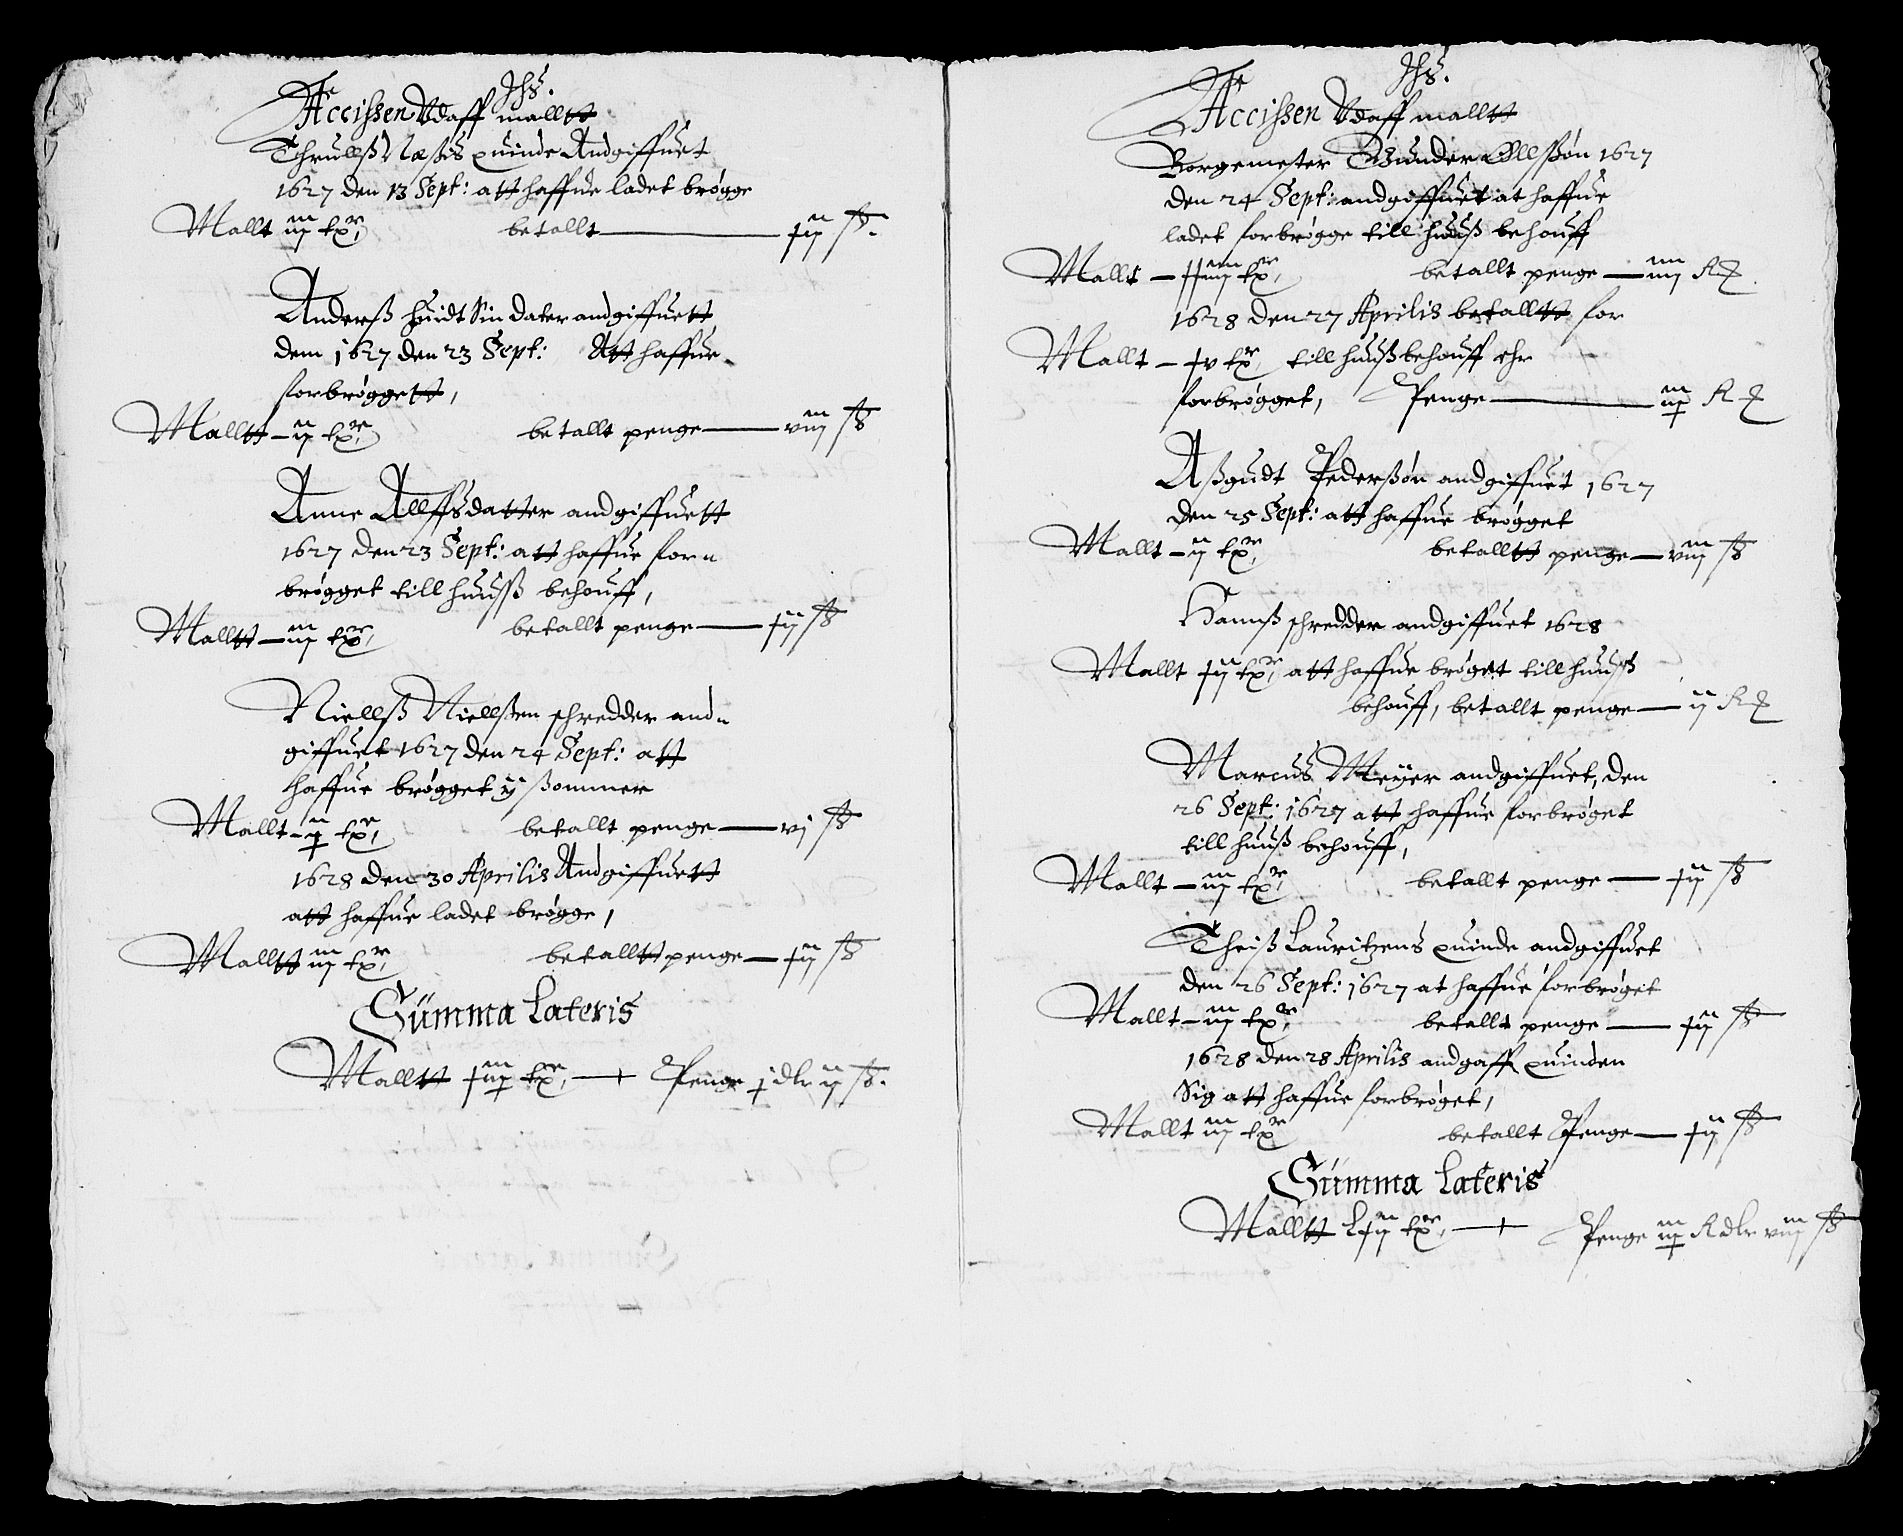 Jhs.
Accissen Vdaff malltt
Thrullß Næßis quinde Andgiffuet
1627 den 13 Sept: att haffue ladet brøgge
Mallt iij txr, betallt xij ß.
Anderß huidt Sin dater andgiffuett
dem 1627 den 23 Sept: Att haffue
forbrøggett,
Malltt – ij txr, betallt penge viij ß
Anne Allffsdatter andgiffuett
1627 den 23 Sept: att haffue for
brøgget till huuß behouff,
Malltt – iij txr, betallt penge xij ß
Niellß Nielßen schredder and
giffuet 1627 den 24 Sept: att
haffue brøgget ij ßommer
Mallt – txr, betallt penge vj ß
1628 den 30 Aprilis Andgiffuett
att haffue ladet brøgge,
Malltt iij txr, betalltt penge xij ß
Summa Lateris
Malltt txr, Penge j dlr ij ß.
Jhs.
Accissen Vdaff malltt
Borgemester Gunder Ollßøn 1627
den 24 Sept: andgiffuet at haffue
ladet forbrøgge till huuß behouff
Mallt – xxiiij txr, betallt penge iiij R
1628 den 27 Aprilis betalltt for
Mallt – xv txr till huuß behouff ehr
forbrøgget, Penge R
Aßgudt Pederßøn andgiffuet 1627
den 25 Sept: att haffue brøgget
Mallt – ij txr, betalltt penge viij ß
Hannß schredder andgiffuet 1628
Mallt xij txr, att haffue brøget till huuß
behouff, betallt penge ij R
Marcus Meyer andgiffuet, den
26 Sept: 1627 att haffue forbrøget
till huuß behouff,
Mallt – iij txr, betallt penge xij ß
Theiß Lauritzens quinde andgiffuet
den 26 Sept: 1627 at haffue forbrøget
Mallt – iij txr, betallt penge xij ß
1628 den 28 Aprilis andgaff quinden
Sig att haffue forbrøget,
Mallt iij txr betallt Penge xij ß
Summa Lateris
Malltt Lxij txr, Penge Rdlr viij ß